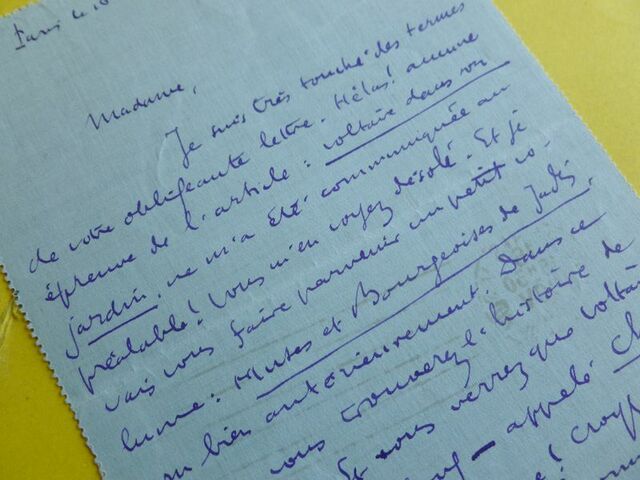 Paris le 18
Madame,
Je suis très touché des termes
de votre obligeante lettre. Hélas! aucune
épreuve de l'article : Voltaire dans son
jardin, ne m'a été communiquée au
préalable! Vous m'en voyez désolé. Et je
vais vous faire parvenir un petit vo-
lume : Muses et Bourgeoises de Jadis,
bien antérieurement. Dans ce
vous trouverez l'histoire de
Et vous verrez que Voltai
appelé